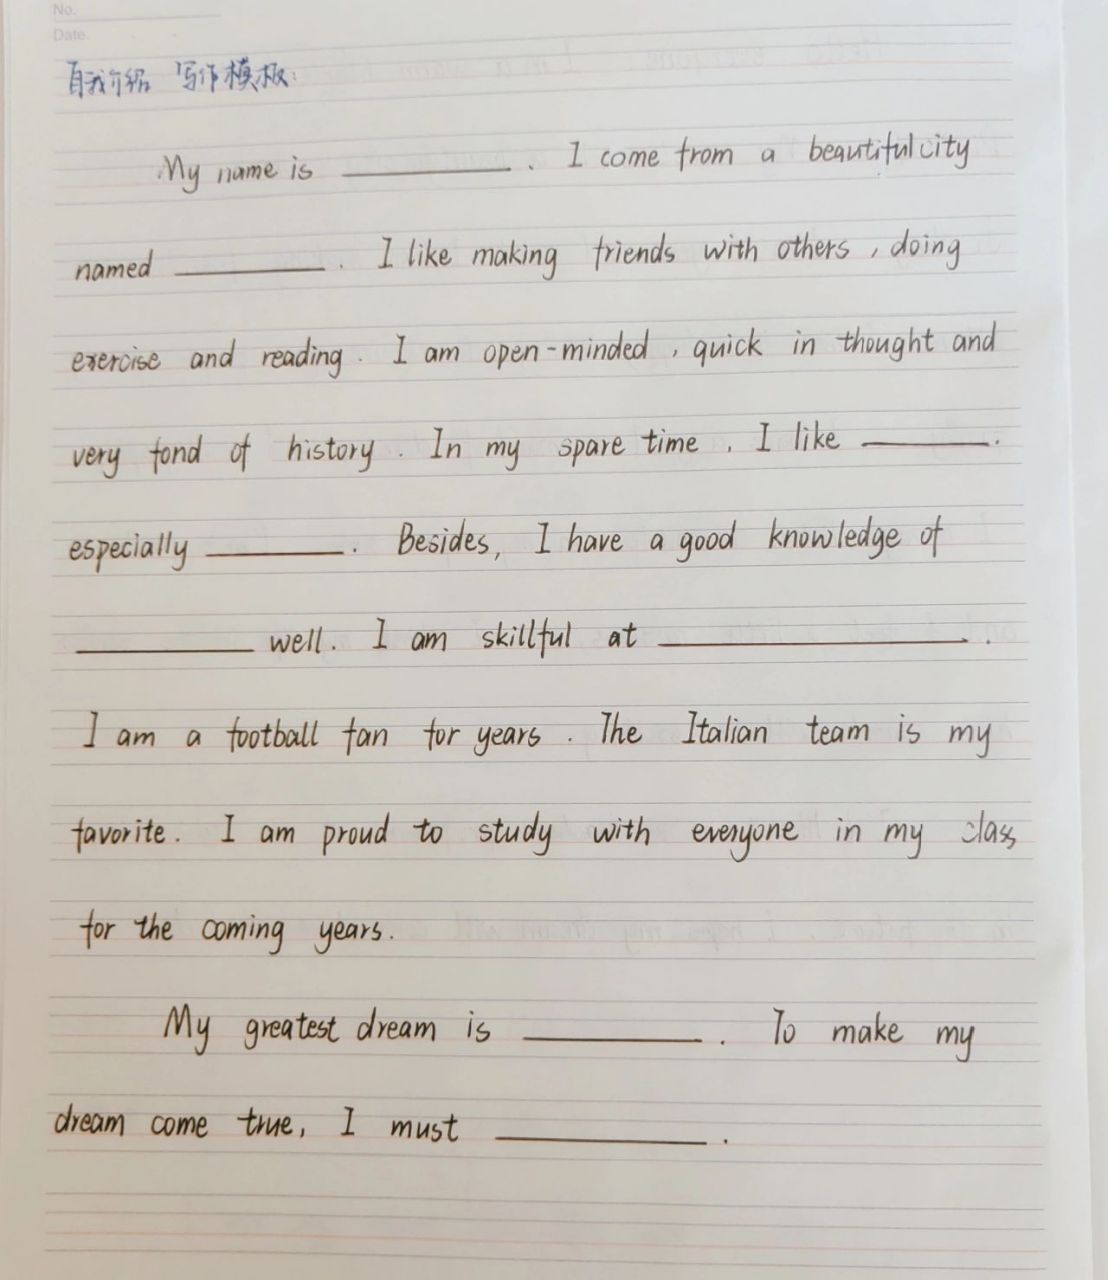 No.
Date.
自我介绍 写作模板:
My name is ________. I come from a beautiful city
named ________. I like making friends with others, doing
exercise and reading. I am open-minded, quick in thought and
very fond of history. In my spare time, I like ________.
especially ________. Besides, I have a good knowledge of
________ well. I am skillful at ________.
I am a football fan for years. The Italian team is my
favorite. I am proud to study with everyone in my class
for the coming years.
My greatest dream is ________. To make my
dream come true, I must ________.